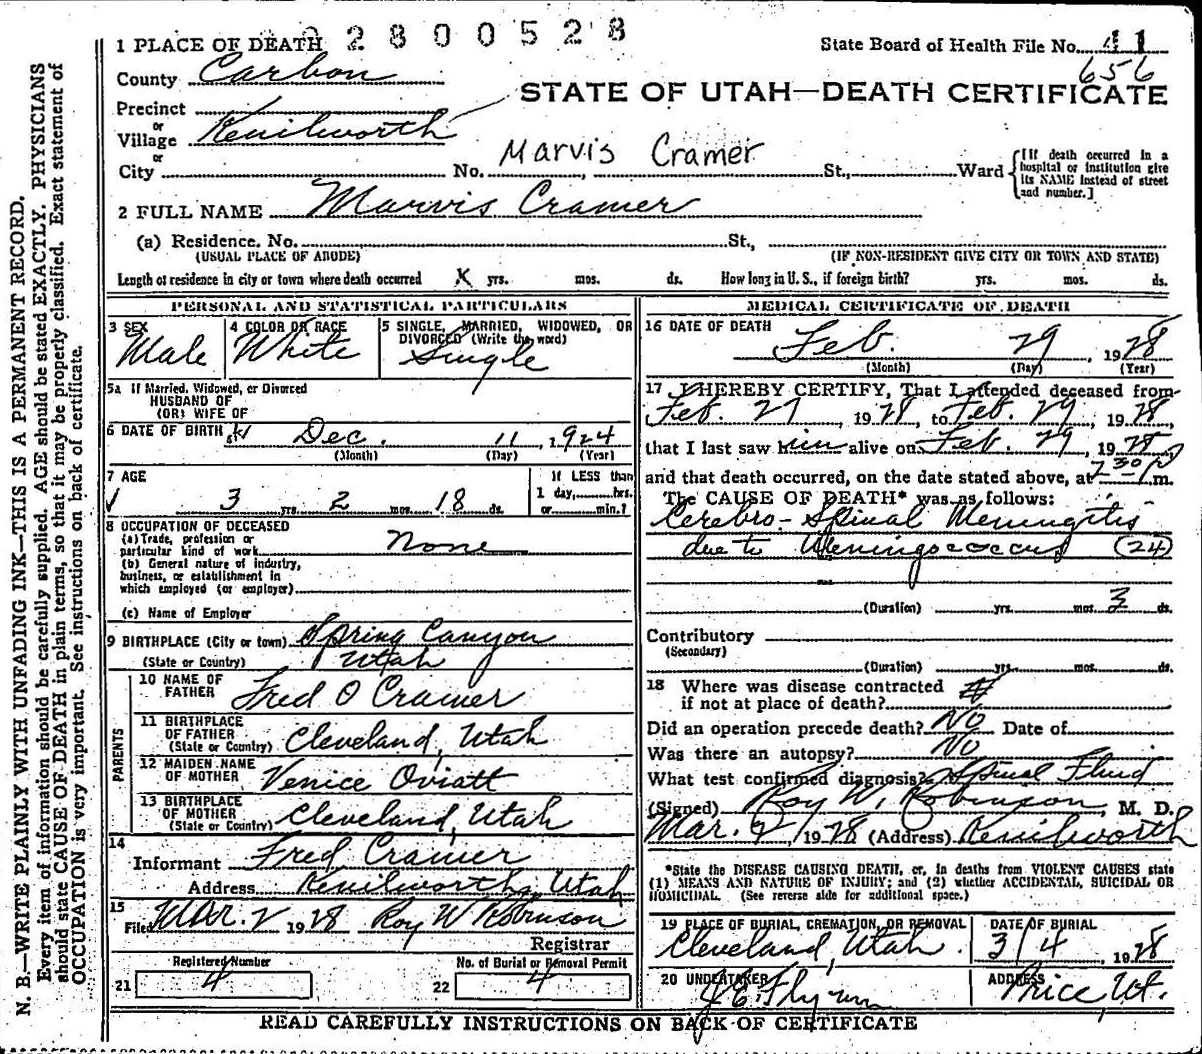 2800528
State Board of Health File No. 41
656
1 PLACE OF DEATH
County Carbon
STATE OF UTAH—DEATH CERTIFICATE
Precinct
or
Village Kenilworth
or
City No. Marvis Cramer St., Ward [If death occurred in a hospital or institution give its NAME instead of street and number.]
2 FULL NAME Marvis Cramer
(a) Residence. No. St.,
(USUAL PLACE OF ABODE) (IF NON-RESIDENT GIVE CITY OR TOWN AND STATE)
Length of residence in city or town where death occurred X yrs. mos. ds. How long in U. S., if foreign birth? yrs. mos. ds.
PERSONAL AND STATISTICAL PARTICULARS
3 SEX Male
4 COLOR OR RACE White
5 SINGLE, MARRIED, WIDOWED, OR DIVORCED (Write the word) Single
5a If Married, Widowed, or Divorced
HUSBAND OF
(OR) WIFE OF
6 DATE OF BIRTH Dec. 11, 1924
(Month) (Day) (Year)
7 AGE
3 yrs. 2 mos. 18 ds.
If LESS than
1 day, hrs.
or min.?
8 OCCUPATION OF DECEASED
(a) Trade, profession or
particular kind of work None
(b) General nature of industry,
business, or establishment in
which employed (or employer)
(c) Name of Employer
9 BIRTHPLACE (City or town) Spring Canyon
(State or Country) Utah
PARENTS
10 NAME OF FATHER Fred O Cramer
11 BIRTHPLACE OF FATHER (State or Country) Cleveland, Utah
12 MAIDEN NAME OF MOTHER Venice Oviatt
13 BIRTHPLACE OF MOTHER (State or Country) Cleveland, Utah
14
Informant Fred Cramer
Address Kenilworth, Utah
15
Filed Mar. 2 1928 Roy W Robinson
Registrar
Registered Number
21 4
No. of Burial or Removal Permit
22 4
MEDICAL CERTIFICATE OF DEATH
16 DATE OF DEATH
Feb. 29, 1928
(Month) (Day) (Year)
17 I HEREBY CERTIFY, That I attended deceased from
Feb. 27, 1928, to Feb. 29, 1928,
that I last saw him alive on Feb. 29, 1928,
and that death occurred, on the date stated above, at 7 30 P m.
The CAUSE OF DEATH* was as follows:
Cerebro-Spinal Meningitis
due to Meningococcus (24)
(Duration) yrs. mos. 3 ds.
Contributory
(Secondary)
(Duration) yrs. mos. ds.
18 Where was disease contracted
if not at place of death?
Did an operation precede death? No Date of
Was there an autopsy? No
What test confirmed diagnosis? Spinal Fluid
(Signed) Roy W. Robinson, M. D.
Mar. 2, 1928 (Address) Kenilworth
*State the DISEASE CAUSING DEATH, or, in deaths from VIOLENT CAUSES state
(1) MEANS AND NATURE OF INJURY; and (2) whether ACCIDENTAL, SUICIDAL OR
HOMICIDAL. (See reverse side for additional space.)
19 PLACE OF BURIAL, CREMATION, OR REMOVAL
Cleveland, Utah.
DATE OF BURIAL
3/4, 1928
20 UNDERTAKER
J E Flynn
ADDRESS
Price, Ut.
READ CAREFULLY INSTRUCTIONS ON BACK OF CERTIFICATE
N. B.—WRITE PLAINLY WITH UNFADING INK—THIS IS A PERMANENT RECORD.
Every item of information should be carefully supplied. AGE should be stated EXACTLY. PHYSICIANS
should state CAUSE OF DEATH in plain terms, so that it may be properly classified. Exact statement of
OCCUPATION is very important. See instructions on back of certificate.